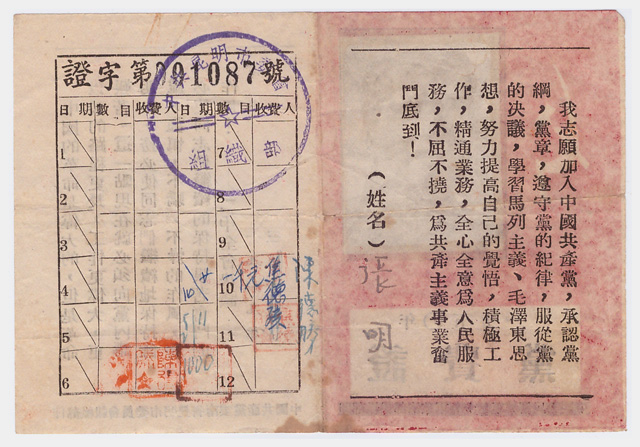 我志願加入中國共產黨，承認黨
綱，黨章，遵守黨的紀律，服從黨
的決議，學習馬列主義、毛澤東思
想，努力提高自己的覺悟，積極工
作，精通業務，全心全意爲人民服
務，不屈不撓，爲共產主義事業奮
鬥底到！
（姓名）張明
證字第 091087 號
日期 數目 收費人 日期 數目 收費人
1 7
2 8
3 9
4 10
5 11
6 12
組織部
1000